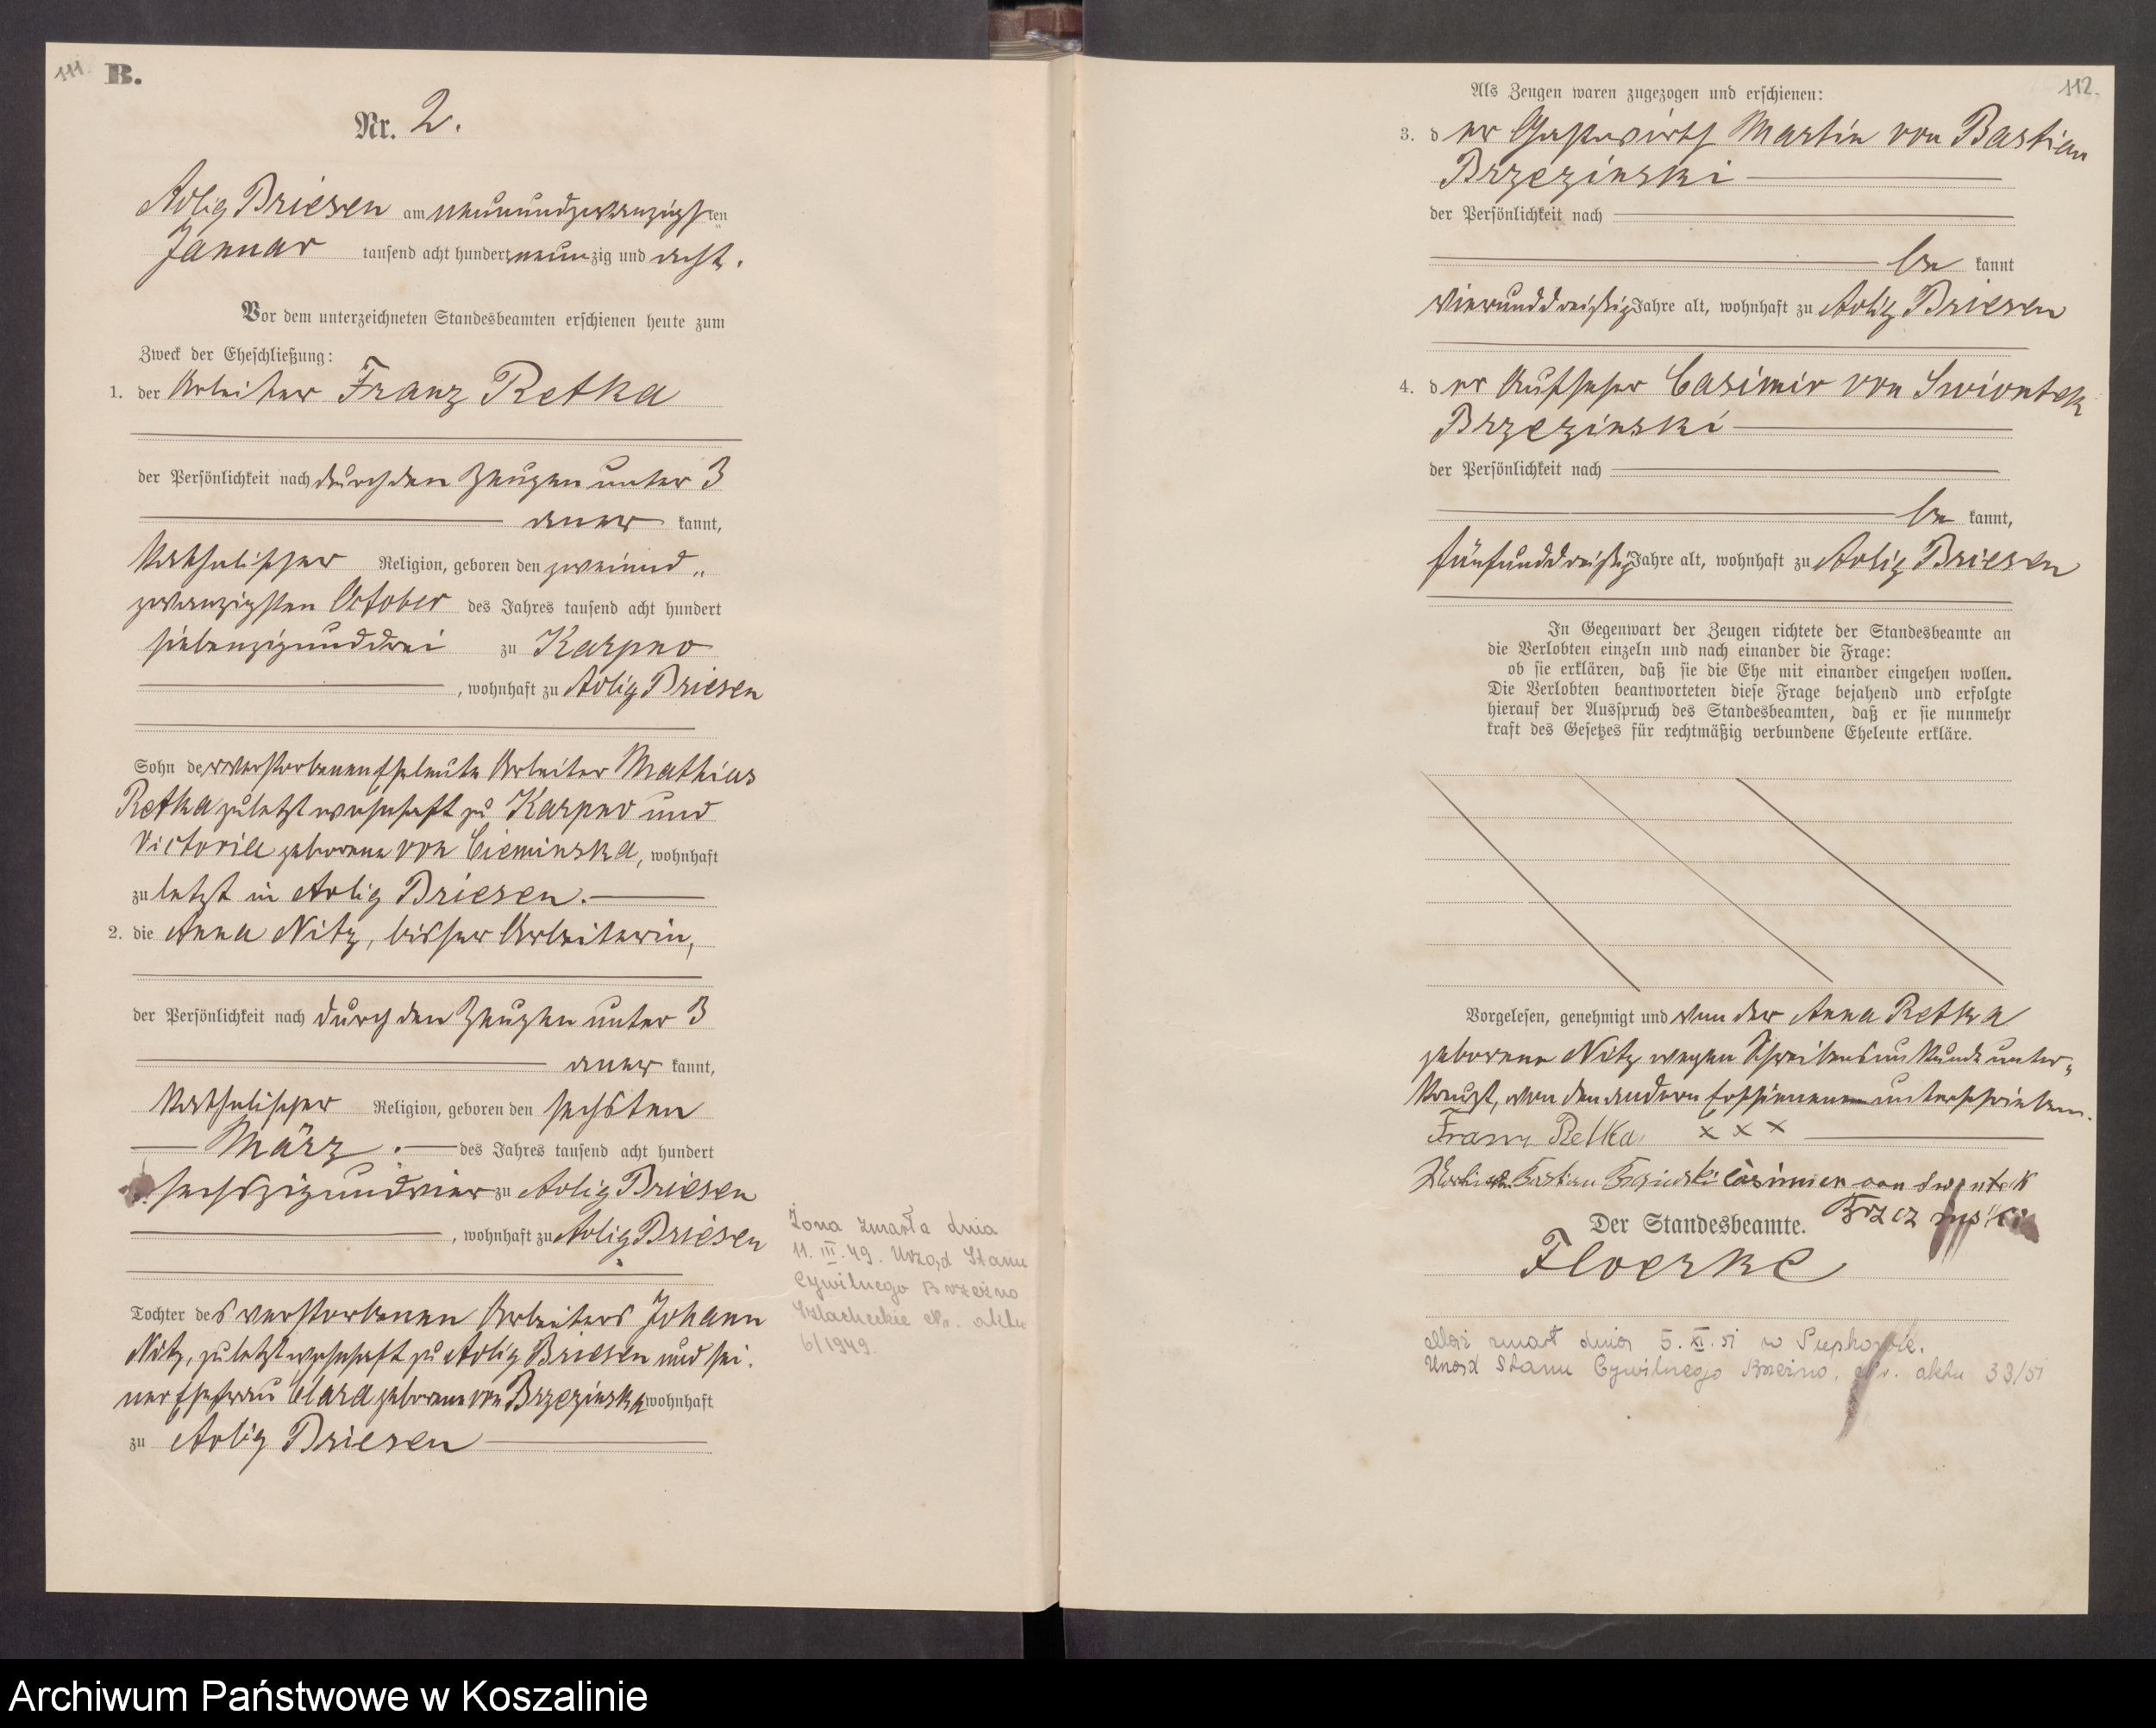 111. B.
Nr. 2.
Adlig Briesen am neunundzwanzigsten
Januar tausend acht hundert neunzig und acht.
Vor dem unterzeichneten Standesbeamten erschienen heute zum
Zweck der Eheschließung:
1. der Arbeiter Franz Retka
der Persönlichkeit nach durch den Zeugen unter 3
anerkannt,
katholischer Religion, geboren den zweiund„
zwanzigsten October des Jahres tausend acht hundert
siebenzigunddrei zu Karpno
, wohnhaft zu Adlig Briesen
Sohn der verstorbenen Eheleute Arbeiter Mathias
Retka zuletzt wohnhaft zu Karpno und
Victoria geborene von Cieminska, wohnhaft
zuletzt in Adlig Briesen.
2. die Anna Nitz, bisher Arbeiterin,
der Persönlichkeit nach durch den Zeugen unter 3
anerkannt,
katholischer Religion, geboren den sechsten
März. des Jahres tausend acht hundert
sechszigundvier zu Adlig Briesen
, wohnhaft zu Adlig Briesen
Tochter des verstorbenen Arbeiters Johann
Nitz, zuletzt wohnhaft zu Adlig Briesen und sei-
ner Ehefrau Clara geborene von Brzezinska wohnhaft
zu Adlig Briesen
Żona zmarła dnia
11. III. 49. Urząd Stanu
Cywilnego Brzeźno
Szlacheckie Nr. aktu
6/1949.
112.
Als Zeugen waren zugezogen und erschienen:
3. der Gastwirth Martin von Bastian
Brzezinski
der Persönlichkeit nach
bekannt
vierunddreißig Jahre alt, wohnhaft zu Adlig Briesen
4. der Aufseher Casimir von Swiontek
Brzezinski
der Persönlichkeit nach
bekannt,
fünfunddreißig Jahre alt, wohnhaft zu Adlig Briesen
In Gegenwart der Zeugen richtete der Standesbeamte an
die Verlobten einzeln und nach einander die Frage:
ob sie erklären, daß sie die Ehe mit einander eingehen wollen.
Die Verlobten beantworteten diese Frage bejahend und erfolgte
hierauf der Ausspruch des Standesbeamten, daß er sie nunmehr
kraft des Gesetzes für rechtmäßig verbundene Eheleute erkläre.
Vorgelesen, genehmigt und von der Anna Retka
geborene Nitz wegen Schreibensunkunde unter-
kreuzt, von den andern Erschienenen unterschrieben.
Franz Retka x x x
Martin von Bastian Brzezinski Casimier von Swontek
Der Standesbeamte.
Floerke
Mąż zmarł dnia 5. XI. 51 w
Urząd Stanu Cywilnego Brzeźno, Nr. aktu 33/51
Archiwum Państwowe w Koszalinie